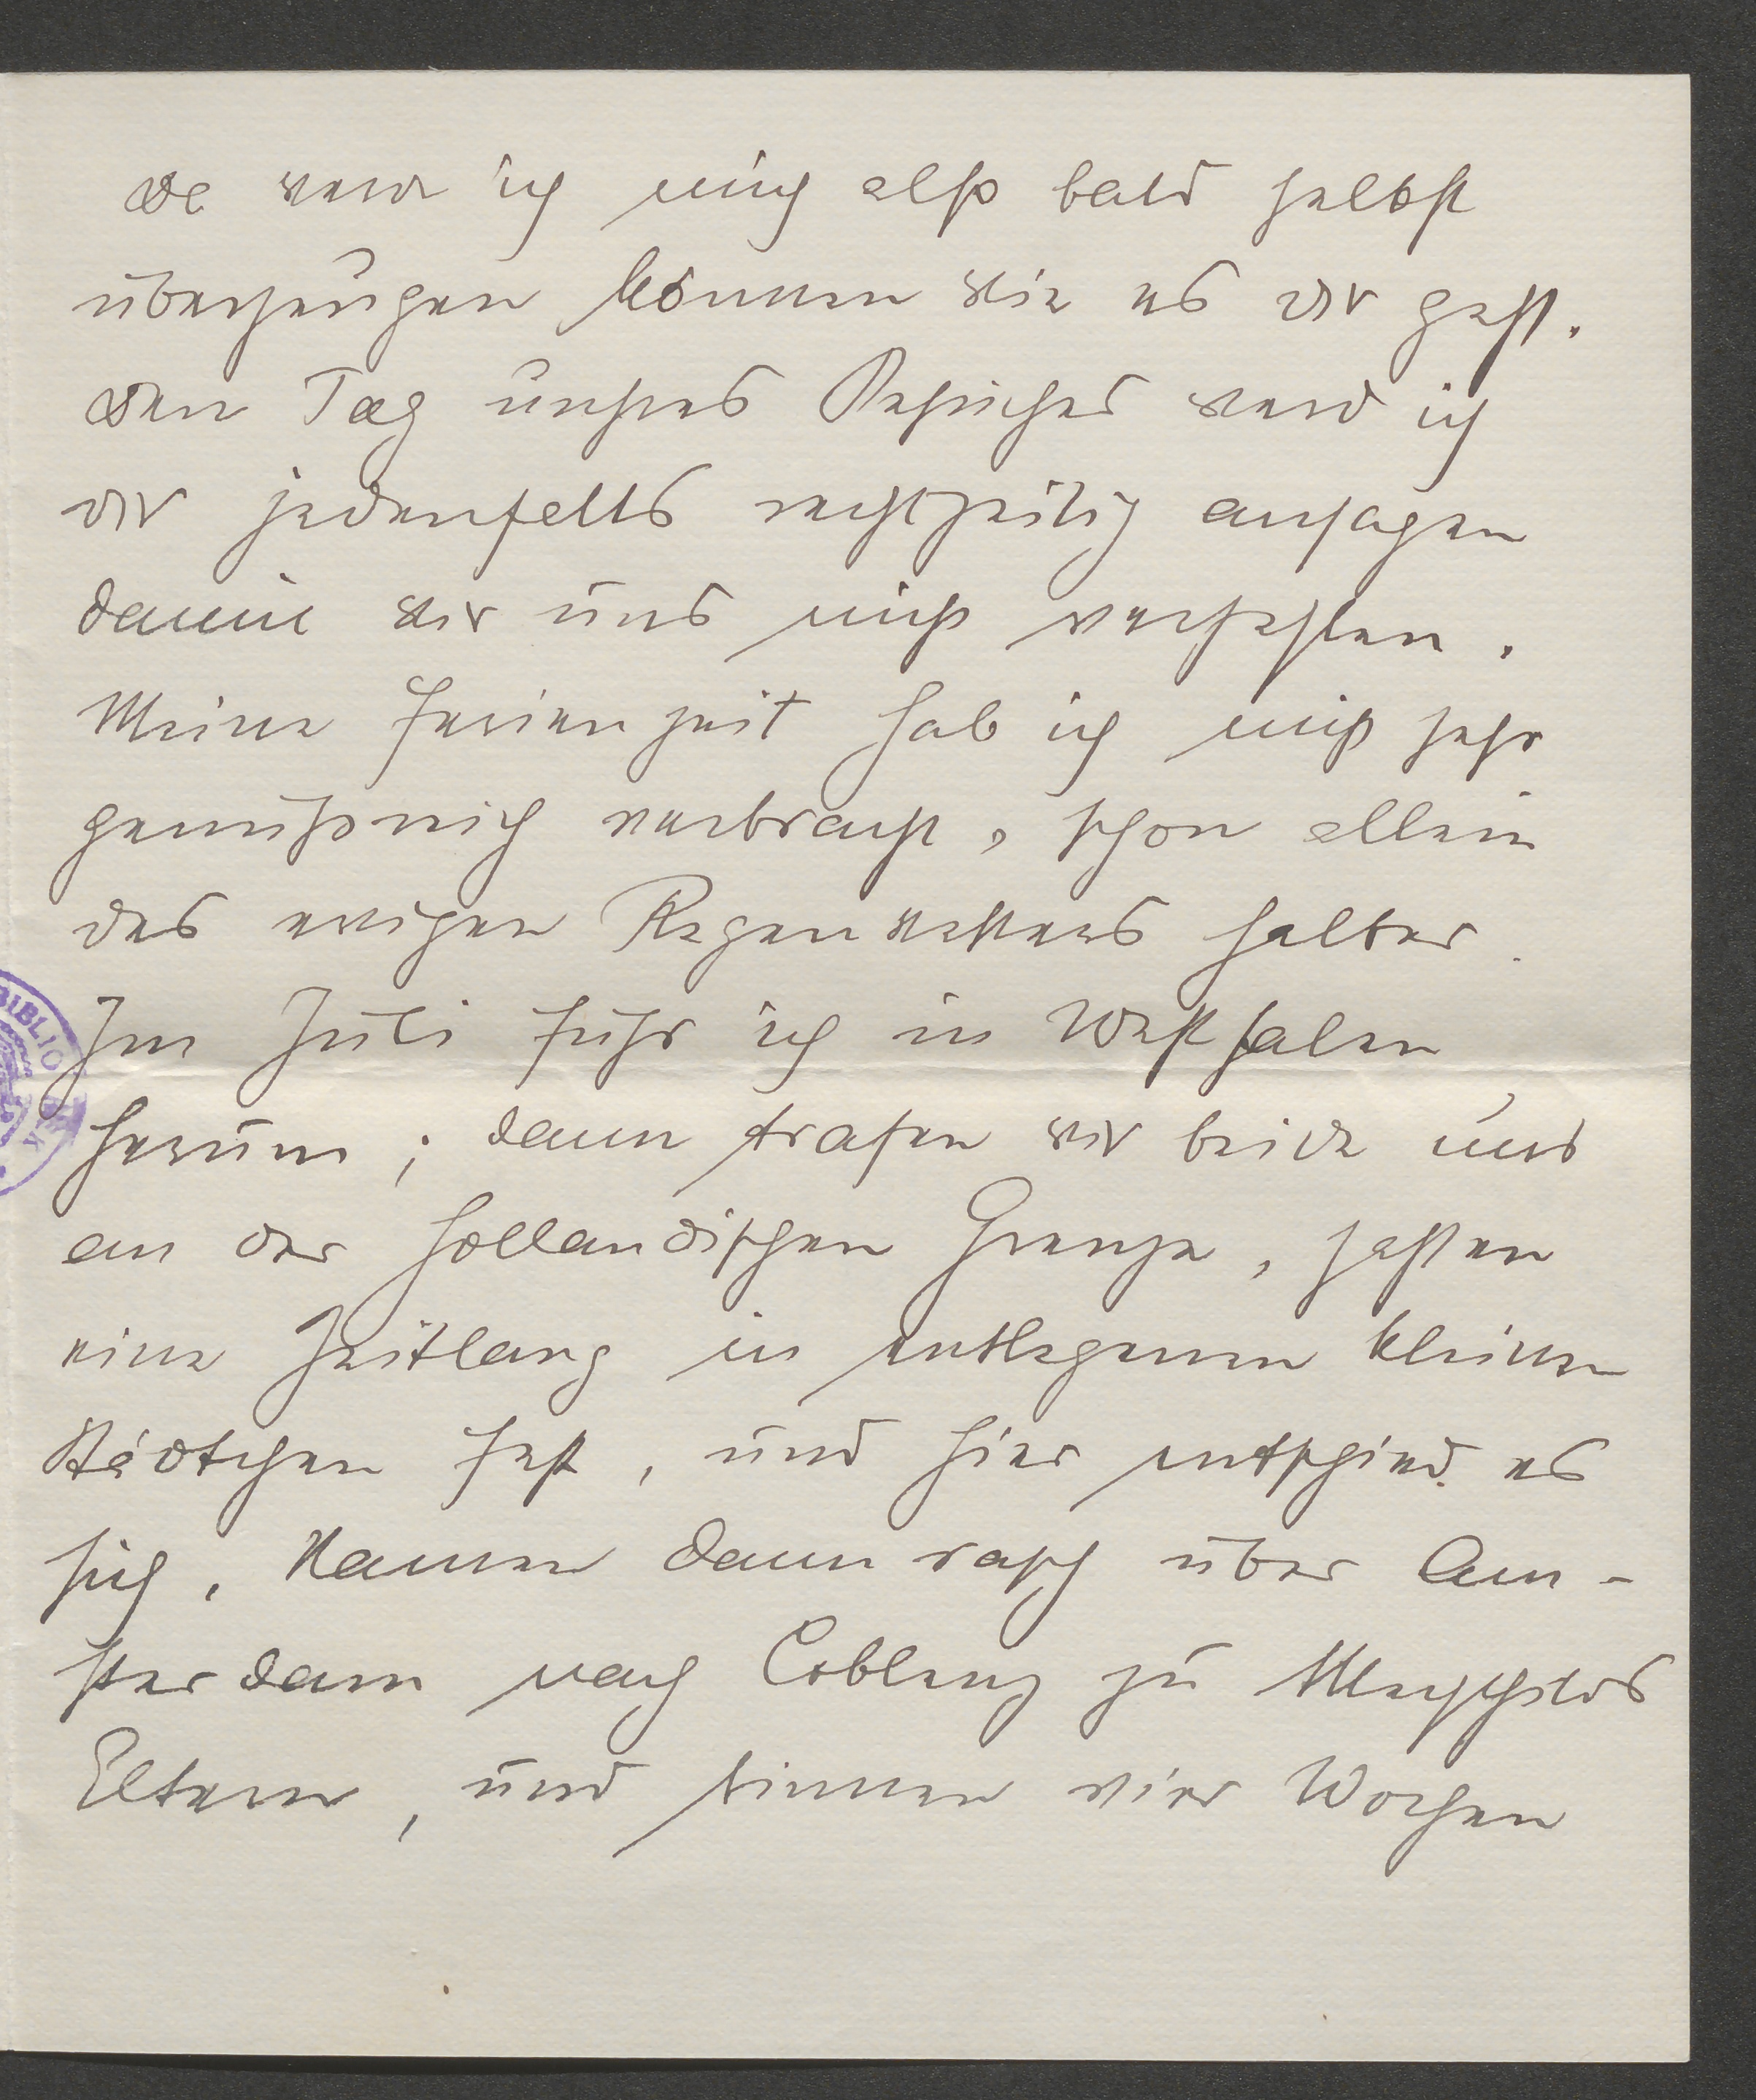 da werd ich mich also bald selbst
überzeugen können wie es dir geht.
den Tag unsres Besuches werd ich
dir jedenfalls rechtzeitig ansagen
damit wir uns nicht verfehlen.
Meine Ferienzeit hab ich nicht sehr
genußreich verbracht, schon allein
des ewigen Regenwetters halber.
Im Juli fuhr ich in Westfalen
herum; dann trafen wir beide uns
an der holländischen Grenze, saßen
eine Zeitlang in entlegenen kleinen
Städtchen fest, und hier entschied es
sich, kamen dann rasch über Am-
sterdam nach Coblenz zu Mechthilds
Eltern, und binnen vier Wochen
BIBLIO